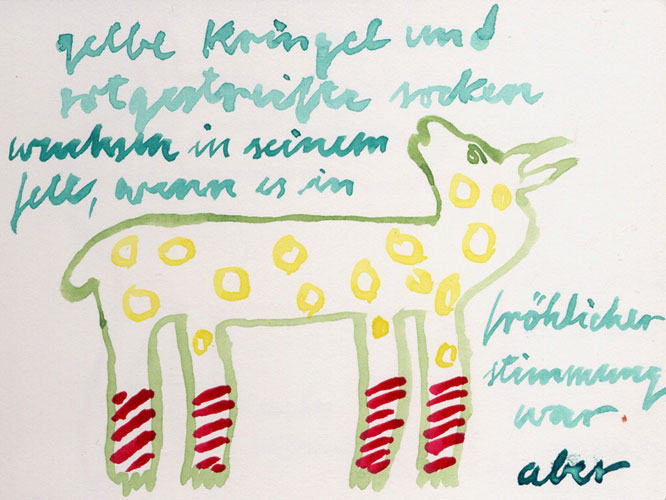 gelbe Kringel und
rotgestreifte socken
wuchsen in seinem
fell, wann es in
fröhlicher
stimmung
war.
aber